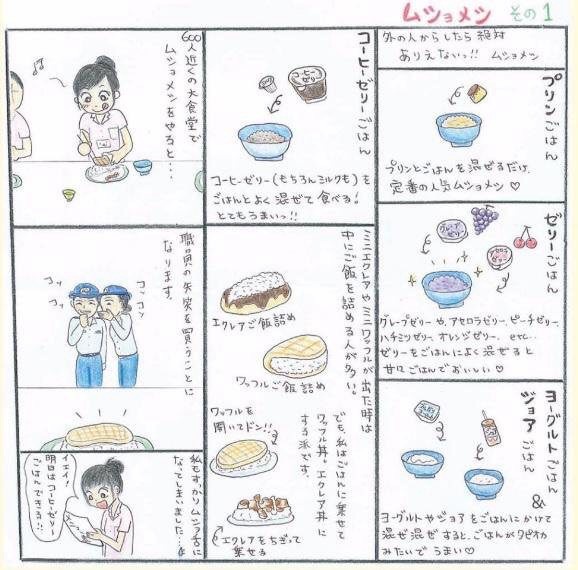 ムショメシ その1
外の人からしたら絶対
ありえないっ!! ムショメシ
プリンごはん
プリンとごはんを混ぜるだけ、
定番の人気ムショメシ♡
ゼリーごはん
グレープゼリー
アセロラゼリー
グレープゼリーや、アセロラゼリー、ピーチゼリー、
ハチミツゼリー、オレンジゼリー、etc…
ゼリーをごはんによく混ぜると
甘々ごはんでおいしい♡
ヨーグルトごはん&
ジョアごはん
ヨーグルトやジョアをごはんにかけて
混ぜ混ぜすると、ごはんがタピオカ
みたいでうまい♡
コーヒーゼリーごはん
コーヒーゼリー
コーヒーゼリー(もちろんミルクも)を
ごはんとよく混ぜて食べる。
とてもうまいっ!!
ミニエクレアやミニワッフルが出た時は
中にご飯を詰める人が多い。
エクレアご飯詰め
ワッフルご飯詰め
でも、私はごはんに乗せて
ワッフル丼。エクレア丼に
する派です。
ワッフルを
開いてドン!!
エクレアをちぎって
乗せる
600人近くの大食堂で
ムショメシをやると…
コソッ
コソコソ
職員の失笑を買うことに
なります。
私もすっかりムショ舌に
なってしまいました…
イェイ!
明日はコーヒーゼリー
ごはんできる!!